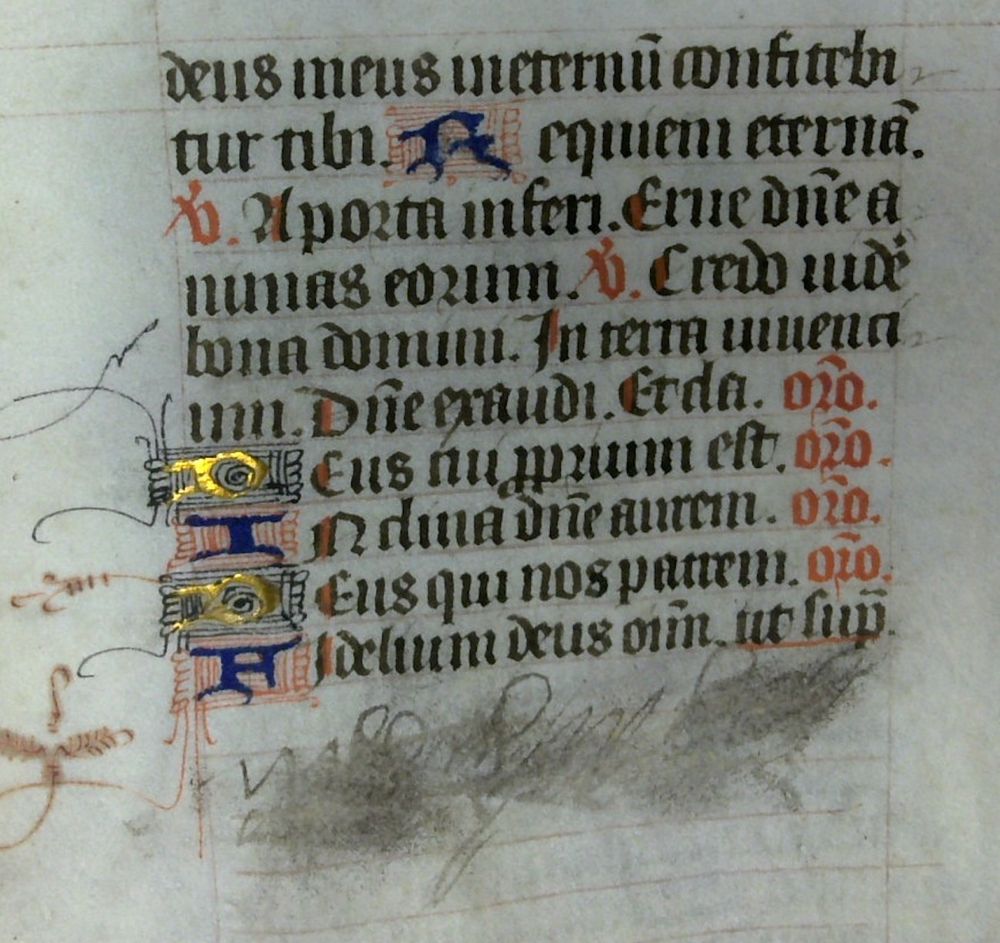 deus meus ineternū confitebi
tur tibi. Requiem eternā.
℣. A porta inferi. Erue dn̄e a
nimas eorum. ℣. Credo uidē
bona domini. In terra uiuenti
um. Dn̄e exaudi. Et cla. or̄o.
Deus cui ꝓprium est. or̄o.
Inclina dn̄e aurem. or̄o.
Deus qui nos patrem. or̄o.
Fidelium deus oīm. ut sup̄.